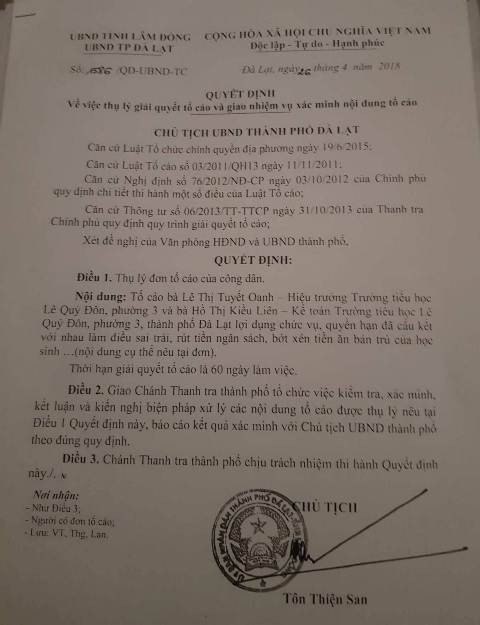 UBND TỈNH LÂM ĐỒNG
UBND TP ĐÀ LẠT
CỘNG HÒA XÃ HỘI CHỦ NGHĨA VIỆT NAM
Độc lập - Tự do - Hạnh phúc
Số: /QĐ-UBND-TC
Đà Lạt, ngày 26 tháng 4 năm 2018
QUYẾT ĐỊNH
Về việc thụ lý giải quyết tố cáo và giao nhiệm vụ xác minh nội dung tố cáo
CHỦ TỊCH UBND THÀNH PHỐ ĐÀ LẠT
Căn cứ Luật Tổ chức chính quyền địa phương ngày 19/6/2015;
Căn cứ Luật Tố cáo số 03/2011/QH13 ngày 11/11/2011;
Căn cứ Nghị định số 76/2012/NĐ-CP ngày 03/10/2012 của Chính phủ
quy định chi tiết thi hành một số điều của Luật Tố cáo;
Căn cứ Thông tư số 06/2013/TT-TTCP ngày 31/10/2013 của Thanh tra
Chính phủ quy định quy trình giải quyết tố cáo;
Xét đề nghị của Văn phòng HĐND và UBND thành phố,
QUYẾT ĐỊNH:
Điều 1. Thụ lý đơn tố cáo của công dân.
Nội dung: Tố cáo bà Lê Thị Tuyết Oanh – Hiệu trưởng Trường tiểu học
Lê Quý Đôn, phường 3 và bà Hồ Thị Kiều Liên – Kế toán Trường tiểu học Lê
Quý Đôn, phường 3, thành phố Đà Lạt lợi dụng chức vụ, quyền hạn đã cấu kết
với nhau làm điều sai trái, rút tiền ngân sách, bớt xén tiền ăn bán trú của học
sinh …(nội dung cụ thể nêu tại đơn).
Thời hạn giải quyết tố cáo là 60 ngày làm việc.
Điều 2. Giao Chánh Thanh tra thành phố tổ chức việc kiểm tra, xác minh,
kết luận và kiến nghị biện pháp xử lý các nội dung tố cáo được thụ lý nêu tại
Điều 1 Quyết định này, báo cáo kết quả xác minh với Chủ tịch UBND thành phố
theo đúng quy định.
Điều 3. Chánh Thanh tra thành phố chịu trách nhiệm thi hành Quyết định
này./.
Nơi nhận:
- Như Điều 3;
- Người có đơn tố cáo;
- Lưu: VT, Thg, Lan.
CHỦ TỊCH
ỦY BAN NHÂN DÂN THÀNH PHỐ ĐÀ LẠT
Tôn Thiện San